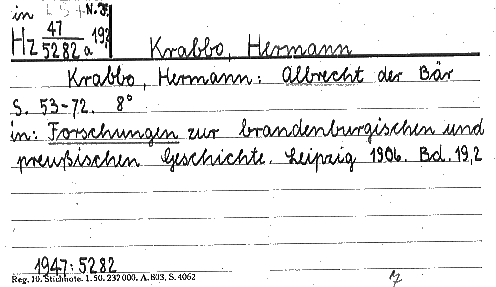 in L S 4 N.F.
Hz 47/5282 a 19,2
Krabbo, Hermann
Krabbo, Hermann: Albrecht der Bär
S. 53-72. 8°
in: Forschungen zur brandenburgischen und
preußischen Geschichte. Leipzig 1906. Bd. 19,2
1947: 5282
Reg. 10. Stichnote. 1. 50. 232000. A. 803, S. 4062